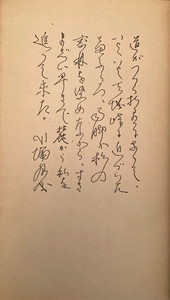 道がつづら折りになって、
いよいよ天城峠に近づいた
と思ふころ、雨脚が杉の
密林を白く染めながら、すさ
まじい早さで麓から私を
追って来た。川端康成